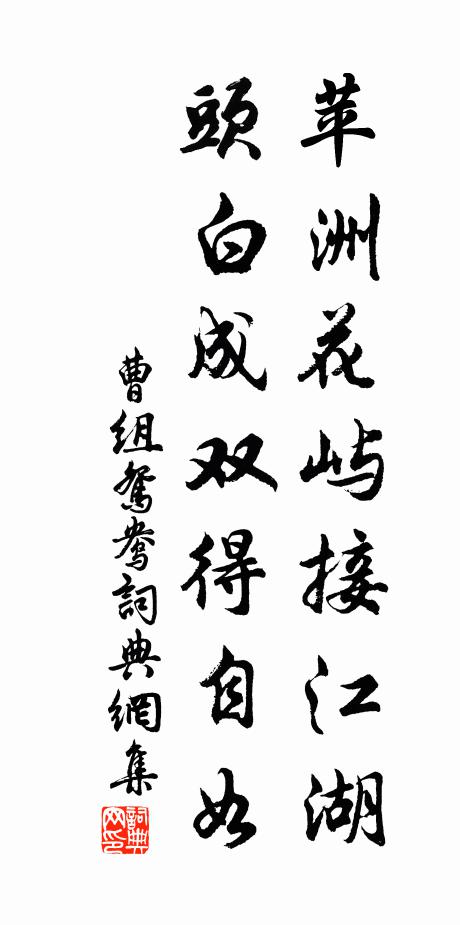 苹洲花屿接江湖
頭白成双得自如
曹组鴛鴦詞典網集
詞典网印